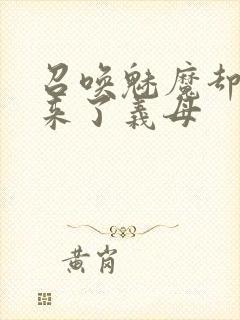 召唤魅魔却
来了義母
黄岗